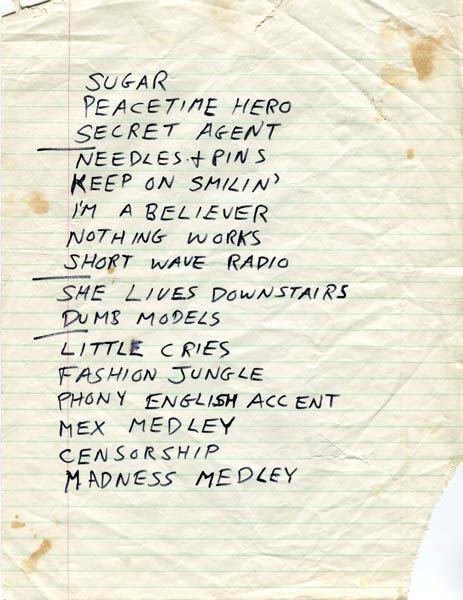 SUGAR
PEACETIME HERO
SECRET AGENT
NEEDLES + PINS
KEEP ON SMILIN'
I'M A BELIEVER
NOTHING WORKS
SHORT WAVE RADIO
SHE LIVES DOWNSTAIRS
DUMB MODELS
LITTLE CRIES
FASHION JUNGLE
PHONY ENGLISH ACCENT
MEX MEDLEY
CENSORSHIP
MADNESS MEDLEY